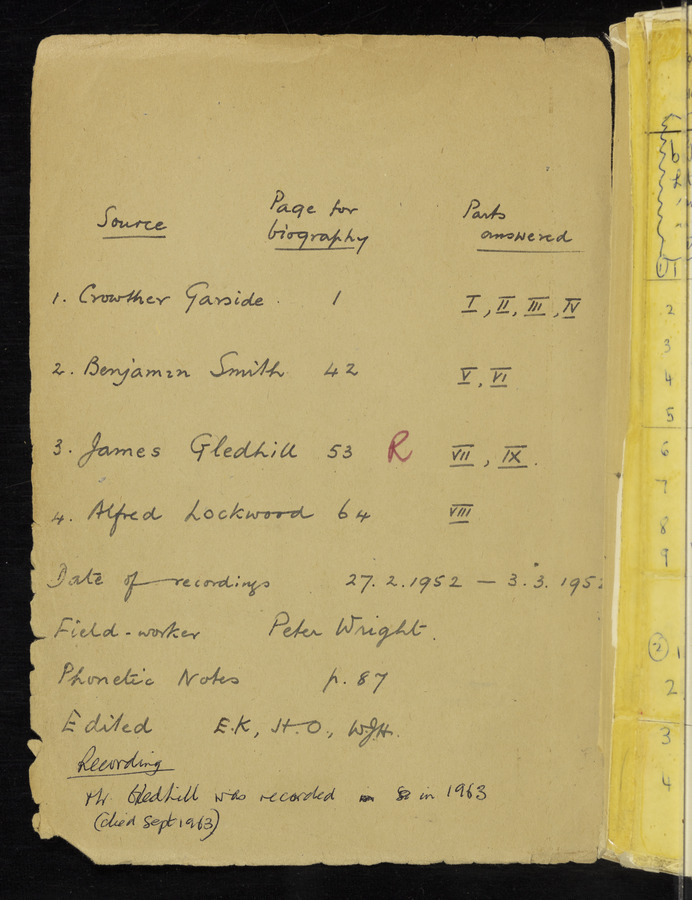 Source Page for biography Parts answered
1. Crowther Garside 1 I, II, III, IV
2. Benjamin Smith 42 V, VI
3. James Gledhill 53 R VII, IX.
4. Alfred Lockwood 64 VIII
Date of recordings 27.2.1952 — 3.3.1952
Field-worker Peter Wright.
Phonetic Notes p. 87
Edited E.K, H.O., W.J.H.
Recording
Mr. Gledhill was recorded in 1963
(died Sept 1963)
2
3
4
5
6
7
8
9
② 1
2
3
4